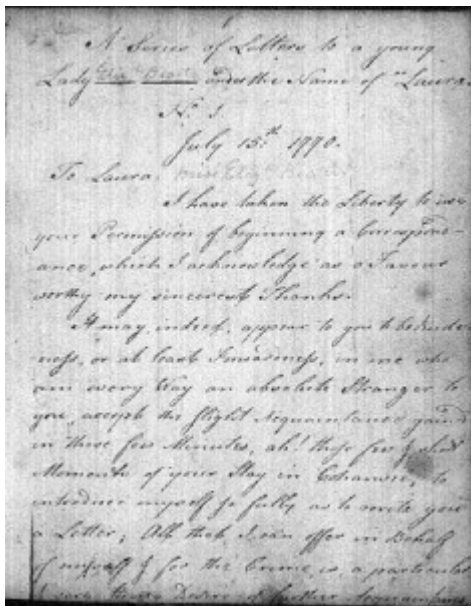 A Series of Letters to a young
Lady under the Name of "Laura.
No. 1.
July 15th 1790.
To Laura.
I have taken the Liberty to use
your Permission of beginning a Correspond-
ance, which I acknowledge as a Favour
worthy my sincerest Thanks.
It may, indeed, appear to you to be
ness, or at least in me who
am every Way an absolute Stranger to
you, except the slight Acquaintance gained
in those few Minutes, ah! those few & short
Moments of your Stay in to
introduce myself so fully as to write you
a Letter; All that I can offer in Behalf
of myself & for the Crime, is, a particular
& very Desire of further Acquaintance